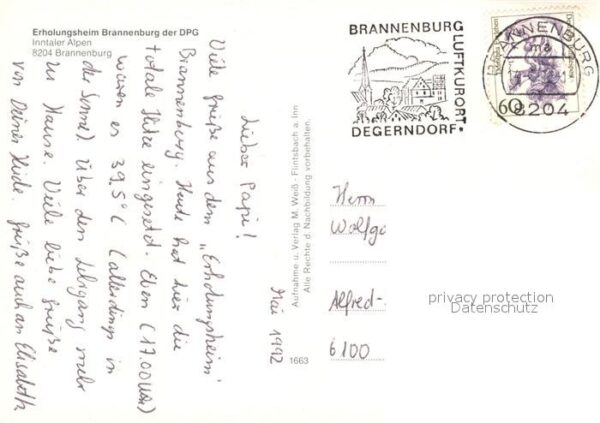 Erholungsheim Brannenburg der DPG
Inntaler Alpen
8204 Brannenburg
Mai 1992
Lieber Papi!
Viele Grüße aus dem „Erholungsheim"
Brannenburg. Heute hat hier die
totale Hitze eingesetzt. Eben (17.00 Uhr)
waren es 39,5°C (allerdings in
der Sonne). Über den Lehrgang mehr
zu Hause. Viele liebe Grüße
von Deiner Heide. Grüße auch an Elisabeth
Aufnahme u. Verlag M. Weiß · Flintsbach a. Inn
Alle Rechte d. Nachbildung vorbehalten.
1663
BRANNENBURG
LUFTKURORT
DEGERNDORF
BRANNENBURG
ma
8204
60
Herrn
Wolfga
Alfred-
6100
privacy protection
Datenschutz